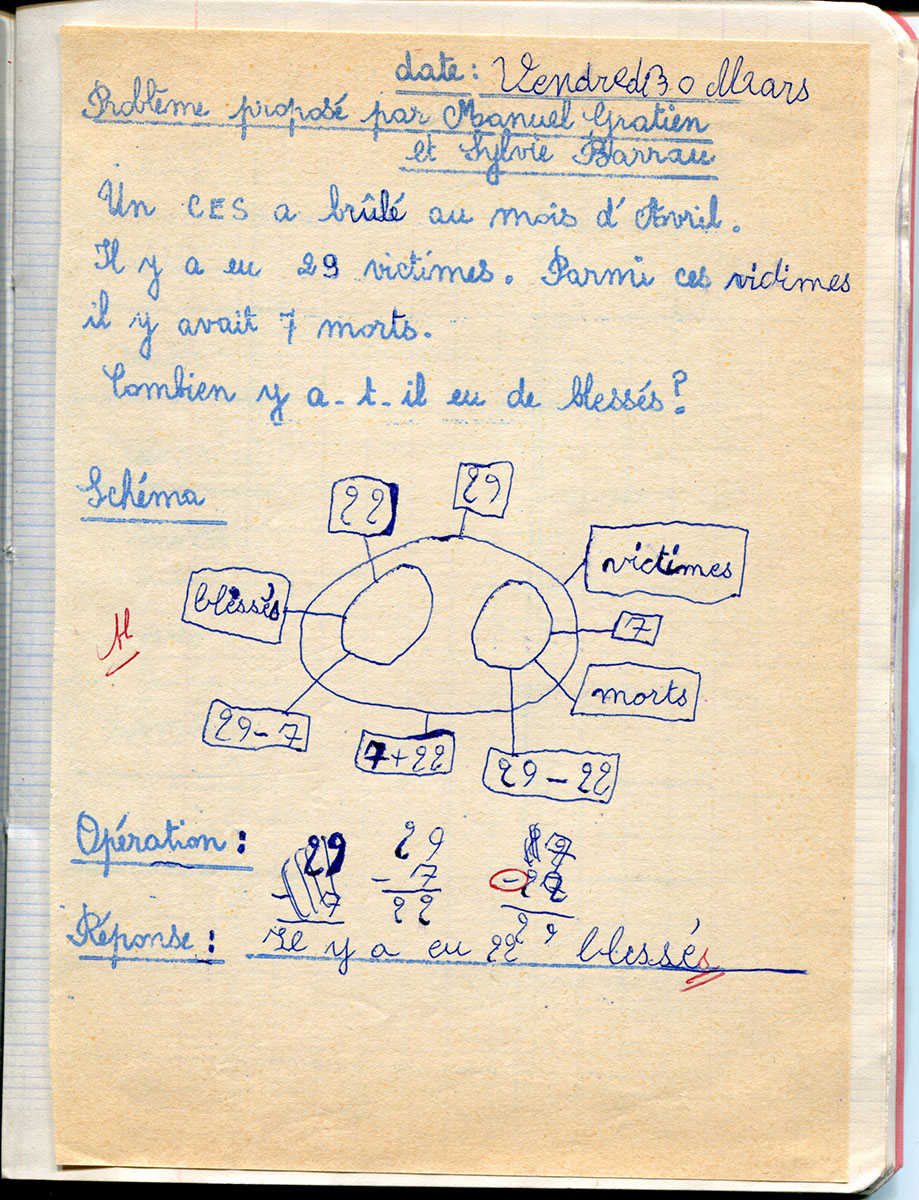 date: Vendredi 30 Mars
Problème proposé par Manuel Gratien
et Sylvie Barrau
Un CES a brûlé au mois d'Avril.
Il y a eu 29 victimes. Parmi ces victimes
il y avait 7 morts.
Combien y a-t-il eu de blessés?
Schéma
22
29
victimes
blessés
7
morts
29-7
7+22
29-22
Opération:
29
29
7
- 7
- 7
- 22
22
29
Réponse: Il y a eu 22 blessés